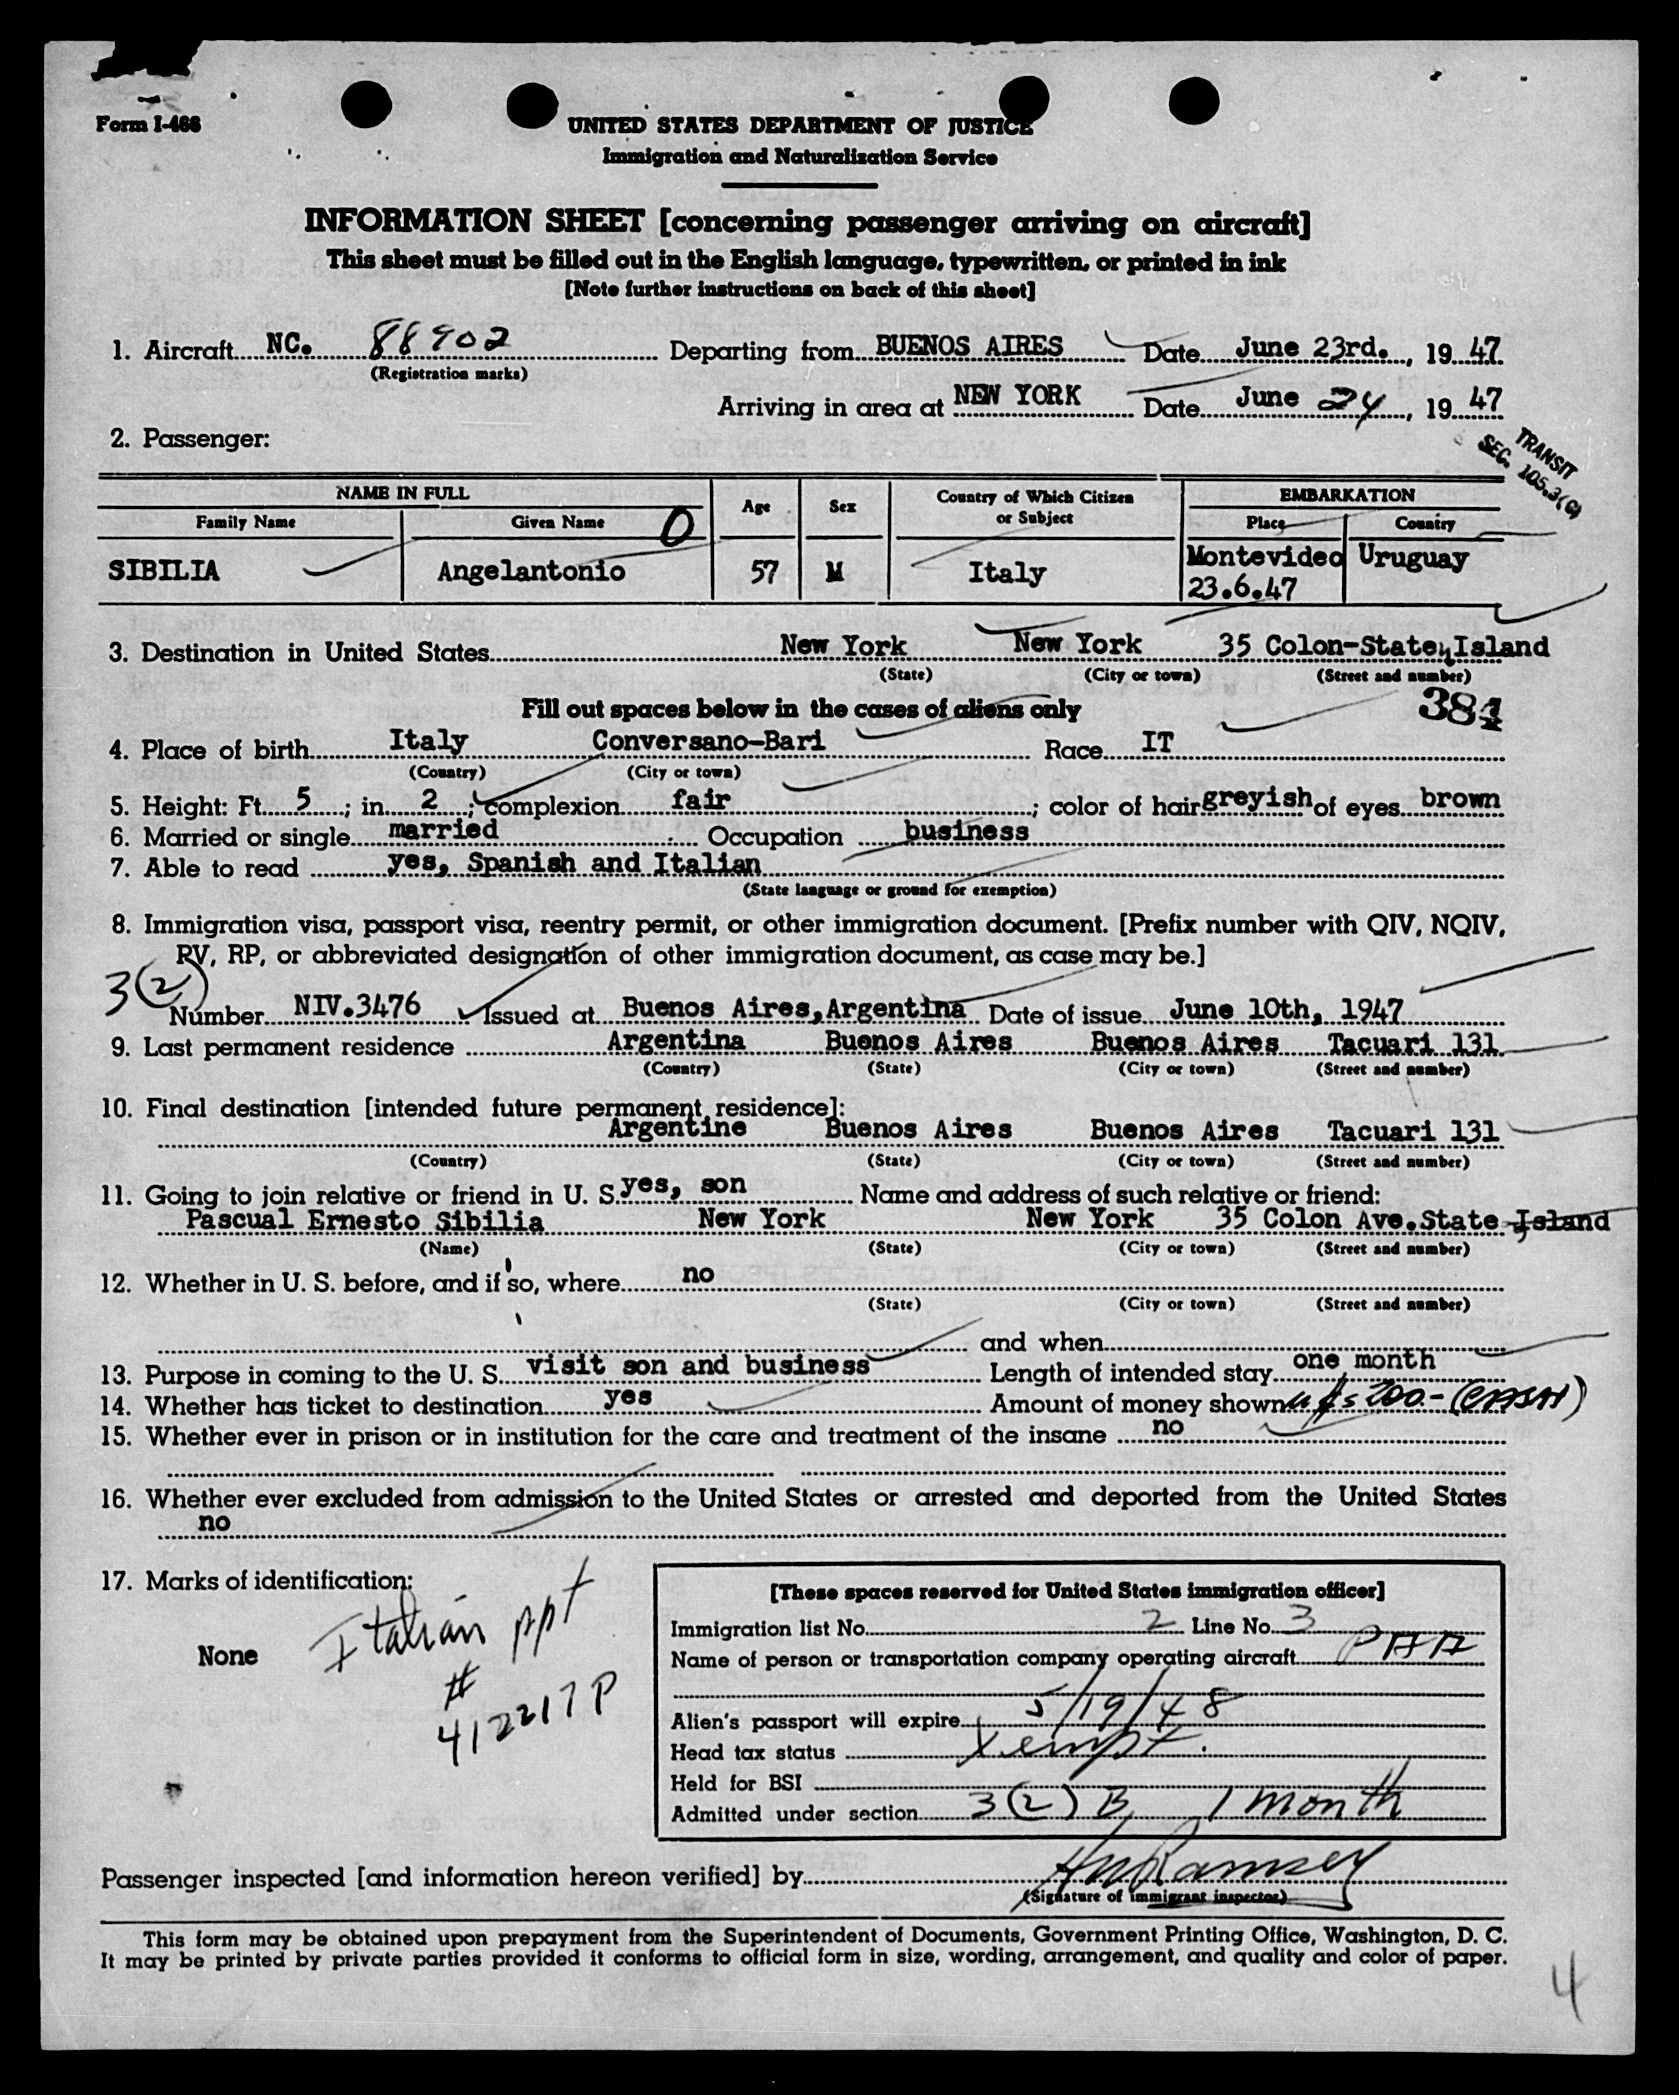 Form I-466
UNITED STATES DEPARTMENT OF JUSTICE
Immigration and Naturalization Service
INFORMATION SHEET [concerning passenger arriving on aircraft]
This sheet must be filled out in the English language, typewritten, or printed in ink
[Note further instructions on back of this sheet]
1. Aircraft NC. 88902 Departing from BUENOS AIRES Date June 23rd., 1947.
(Registration marks)
Arriving in area at NEW YORK Date June 24, 1947
2. Passenger:
TRANSIT
SEC. 105.3(C)
NAME IN FULL Age Sex Country of Which Citizen or Subject EMBARKATION
Family Name Given Name O Place Country
SIBILIA Angelantonio 57 M Italy Montevideo Uruguay
23.6.47
3. Destination in United States New York New York 35 Colon-State,Island
(State) (City or town) (Street and number)
384
Fill out spaces below in the cases of aliens only
4. Place of birth Italy Conversano-Bari Race IT
(Country) (City or town)
5. Height: Ft. 5; in. 2; complexion fair; color of hair greyish of eyes brown
6. Married or single married Occupation business
7. Able to read yes, Spanish and Italian
(State language or ground for exemption)
8. Immigration visa, passport visa, reentry permit, or other immigration document. [Prefix number with QIV, NQIV,
RV, RP, or abbreviated designation of other immigration document, as case may be.]
3(2)
Number NIV.3476 Issued at Buenos Aires,Argentina Date of issue June 10th, 1947
9. Last permanent residence Argentina Buenos Aires Buenos Aires Tacuari 131
(Country) (State) (City or town) (Street and number)
10. Final destination [intended future permanent residence]:
Argentine Buenos Aires Buenos Aires Tacuari 131
(Country) (State) (City or town) (Street and number)
11. Going to join relative or friend in U. S. yes, son Name and address of such relative or friend:
Pascual Ernesto Sibilia New York New York 35 Colon Ave.State Island
(Name) (State) (City or town) (Street and number)
12. Whether in U. S. before, and if so, where no
(State) (City or town) (Street and number)
and when
13. Purpose in coming to the U. S. visit son and business Length of intended stay one month
14. Whether has ticket to destination yes Amount of money shown u$s 200.- (CASH)
15. Whether ever in prison or in institution for the care and treatment of the insane no
16. Whether ever excluded from admission to the United States or arrested and deported from the United States
no
17. Marks of identification:
None
Italian ppt
#
412217P
[These spaces reserved for United States immigration officer]
Immigration list No. 2 Line No. 3
Name of person or transportation company operating aircraft PAA
Alien's passport will expire 5/19/48
Head tax status Xempt.
Held for BSI
Admitted under section 3(2) B 1 month
Passenger inspected [and information hereon verified] by HW Ramsey
(Signature of immigrant inspector)
This form may be obtained upon prepayment from the Superintendent of Documents, Government Printing Office, Washington, D. C.
It may be printed by private parties provided it conforms to official form in size, wording, arrangement, and quality and color of paper.
4